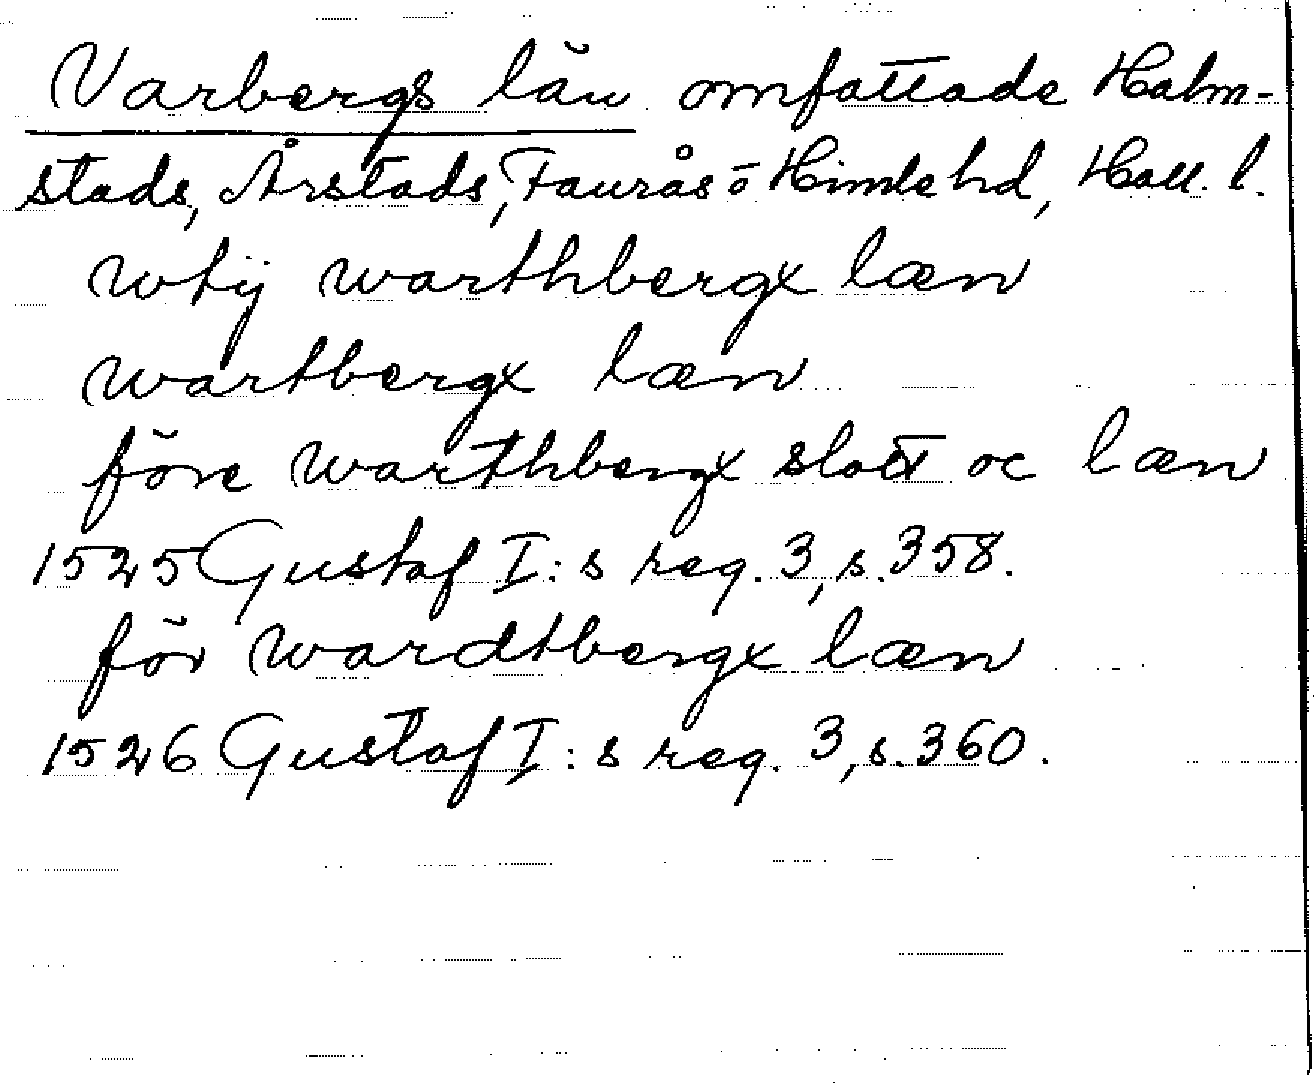 Varbergs län omfattade Halm-
stads, Årstads, Faurås o Himle hd, Hall. l.
wtij warthbergx læn
wartbergx læn
före warthbergx slott oc læn
1525 Gustaf I:s reg. 3, s. 358.
för wardtbergx læn
1526 Gustaf I:s reg. 3, s. 360.